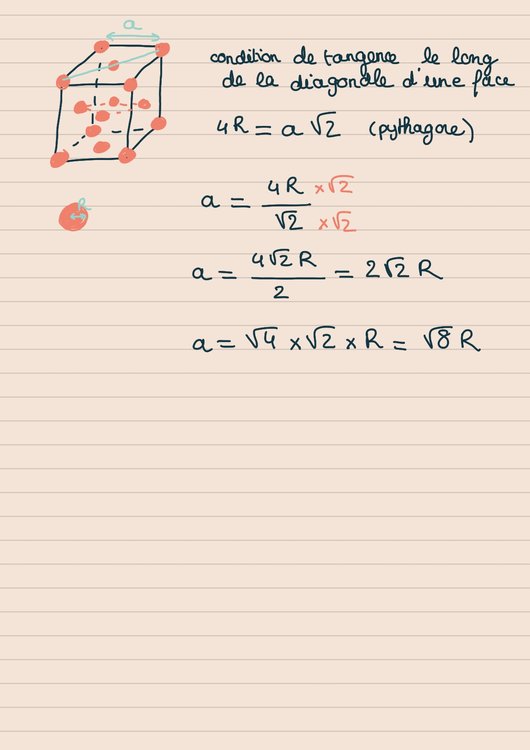 a
condition de tangence le long
de la diagonale d'une face
4R = a √2 (pythagore)
a = 4R ×√2 / √2 ×√2
R
a = 4√2 R / 2 = 2√2 R
a = √4 ×√2 × R = √8 R